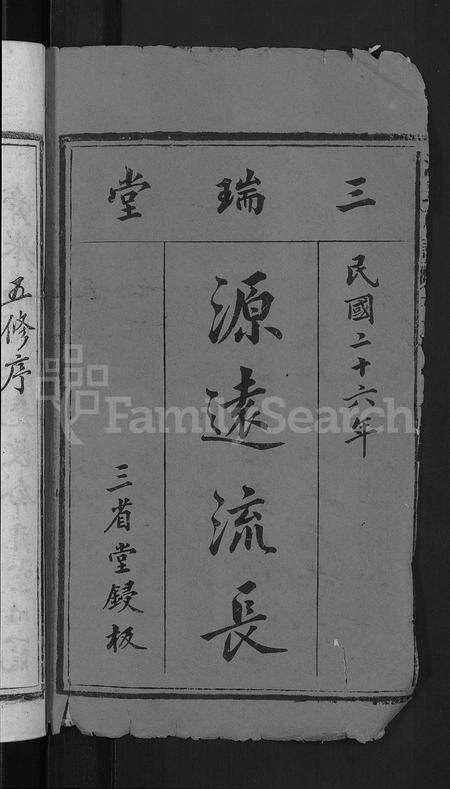 三瑞堂
民國二十六年
源遠流長
三省堂鋟板
五修序
FamilySearch